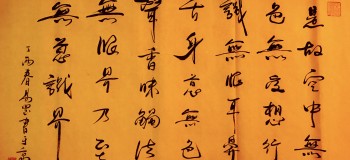 是故空中無
色無受想行
識無眼耳鼻
舌身意無色
聲香味觸法
無眼界乃至
無意識界
春 書